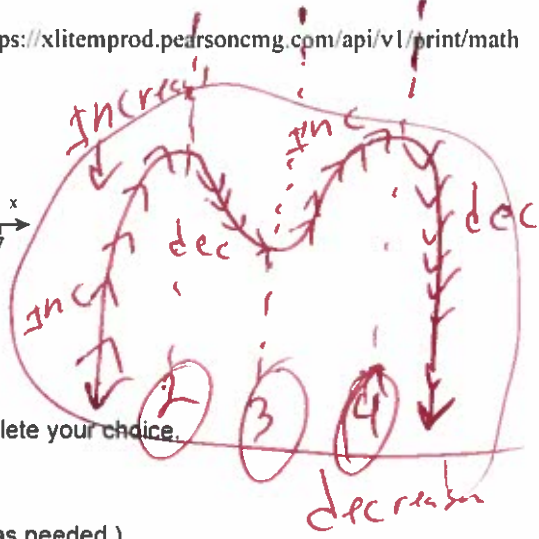 ps://xlitemprod.pearsoncmg.com/api/v1/print/math
Inc
x
dec
dec
Inc
2
3
4
lete your choice.
as needed.)